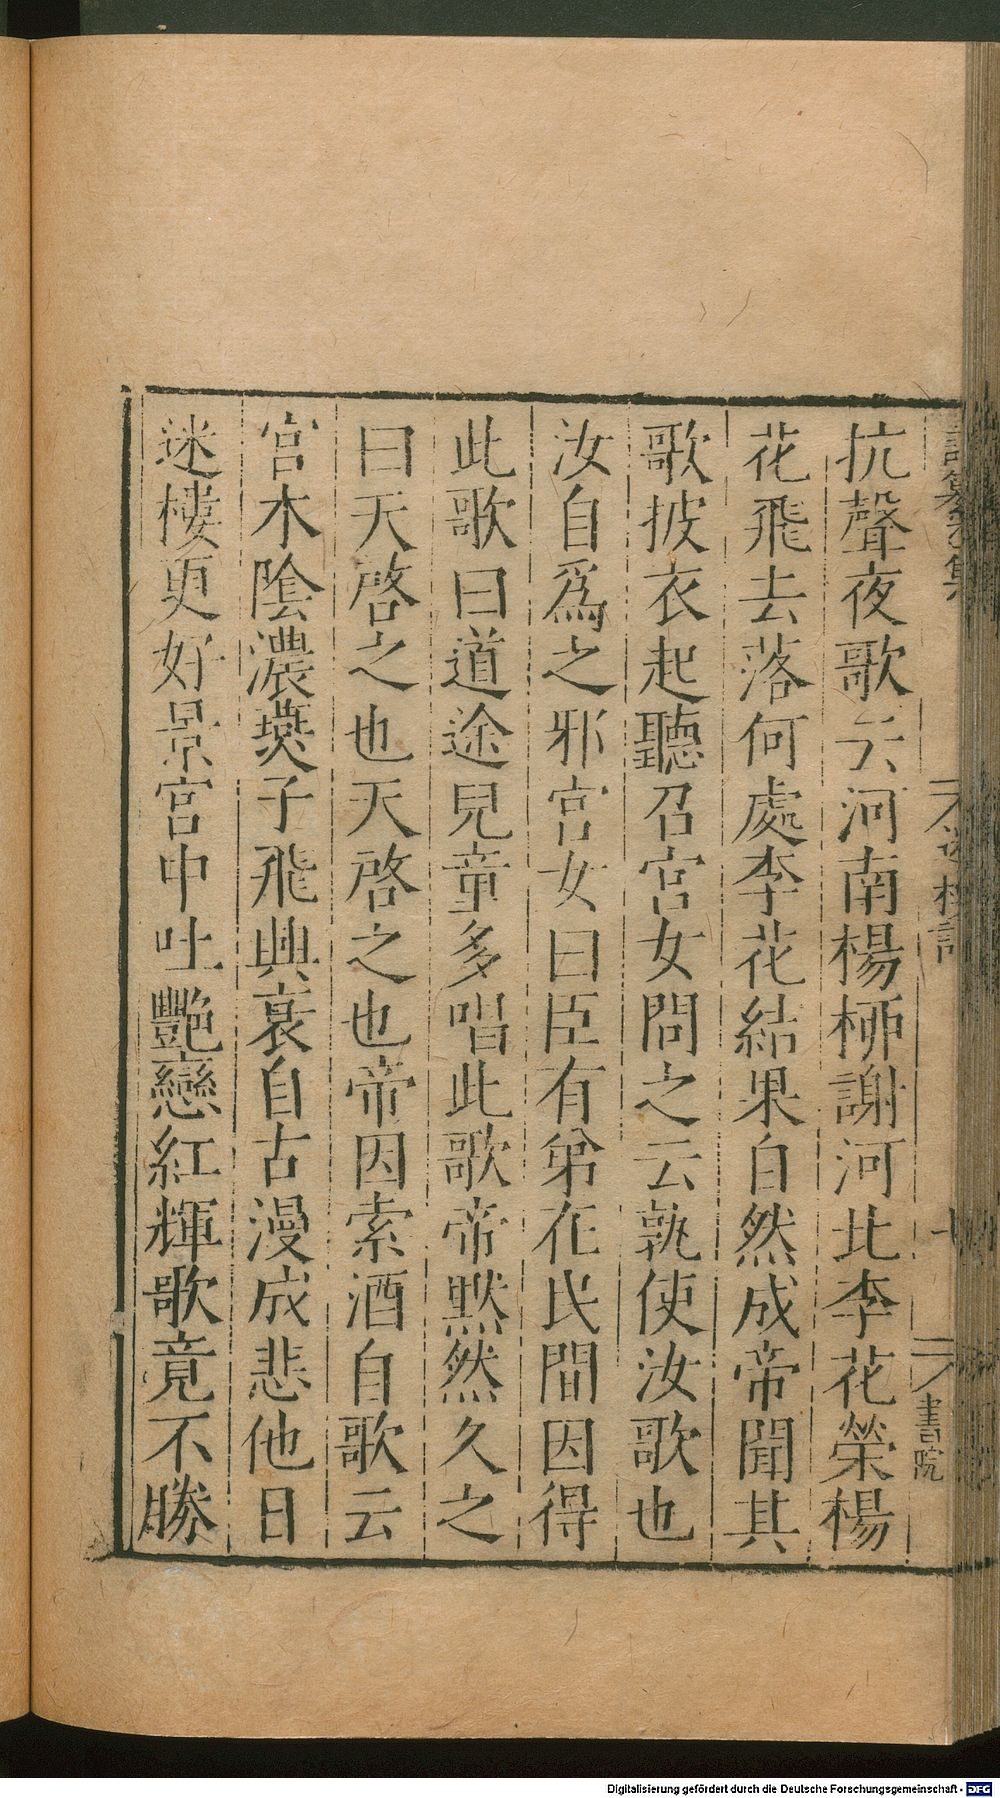 抗聲夜歌云河南楊柳謝河北李花榮楊
花飛去落何處李花結果自然成帝聞其
歌披衣起聽召宮女問之云孰使汝歌也
汝自爲之邪宮女曰臣有弟在民間因得
此歌曰道途兒童多唱此歌帝默然久之
曰天啓之也天啓之也帝因索酒自歌云
宮木陰濃燕子飛興衰自古漫成悲他日
迷樓更好景宮中吐艷戀紅輝歌竟不勝
書院
Digitalisierung gefördert durch die Deutsche Forschungsgemeinschaft - DFG